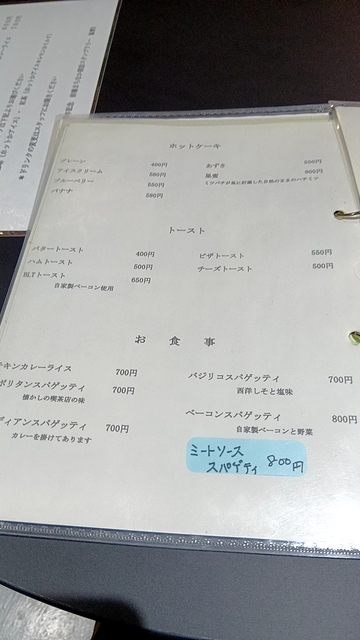 ホットケーキ
プレーン 400円
アイスクリーム 580円
ブルーベリー 550円
バナナ 580円
あずき 550円
巣蜜 900円
ミツバチが巣に貯蔵した自然のままのハチミツ
トースト
バタートースト 400円
ハムトースト 500円
BLTトースト 650円
自家製ベーコン使用
ピザトースト 550円
チーズトースト 500円
お食事
チキンカレーライス 700円
ポリタンスパゲッティ 700円
懐かしの喫茶店の味
ディアンスパゲッティ 700円
カレーを掛けてあります
バジリコスパゲッティ 700円
西洋しそと塩味
ベーコンスパゲッティ 800円
自家製ベーコンと野菜
ミートソース
スパゲティ 800円